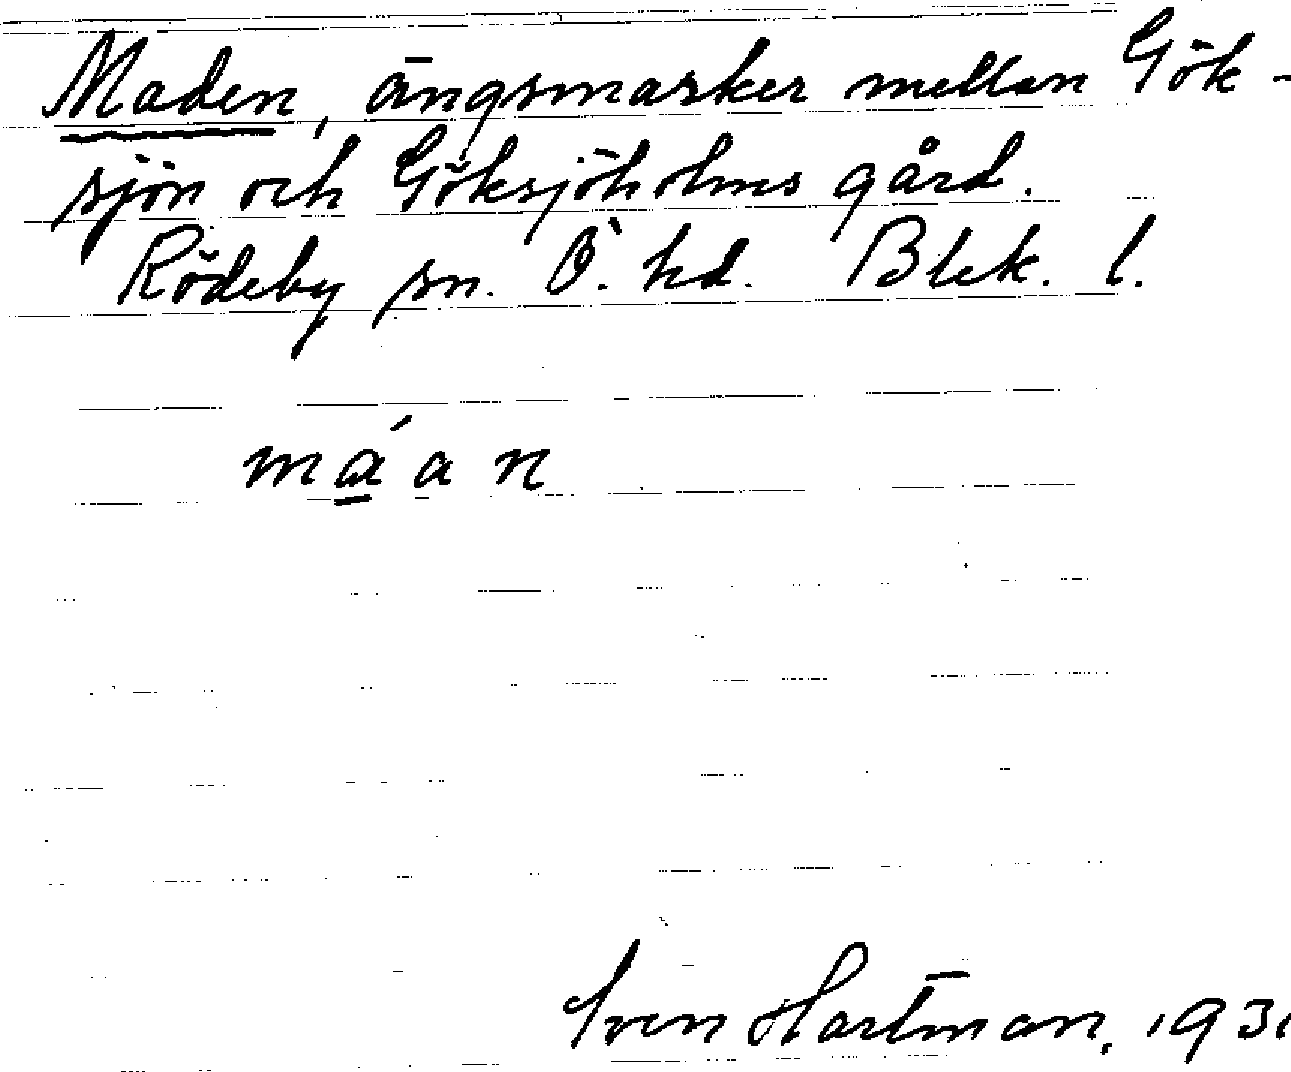 Maden, ängsmarker mellan Gök-
sjön och Göksjöholms gård.
Rödeby sn. Ö. hd. Blek. l.
má̱an
Sven Hartman, 1931